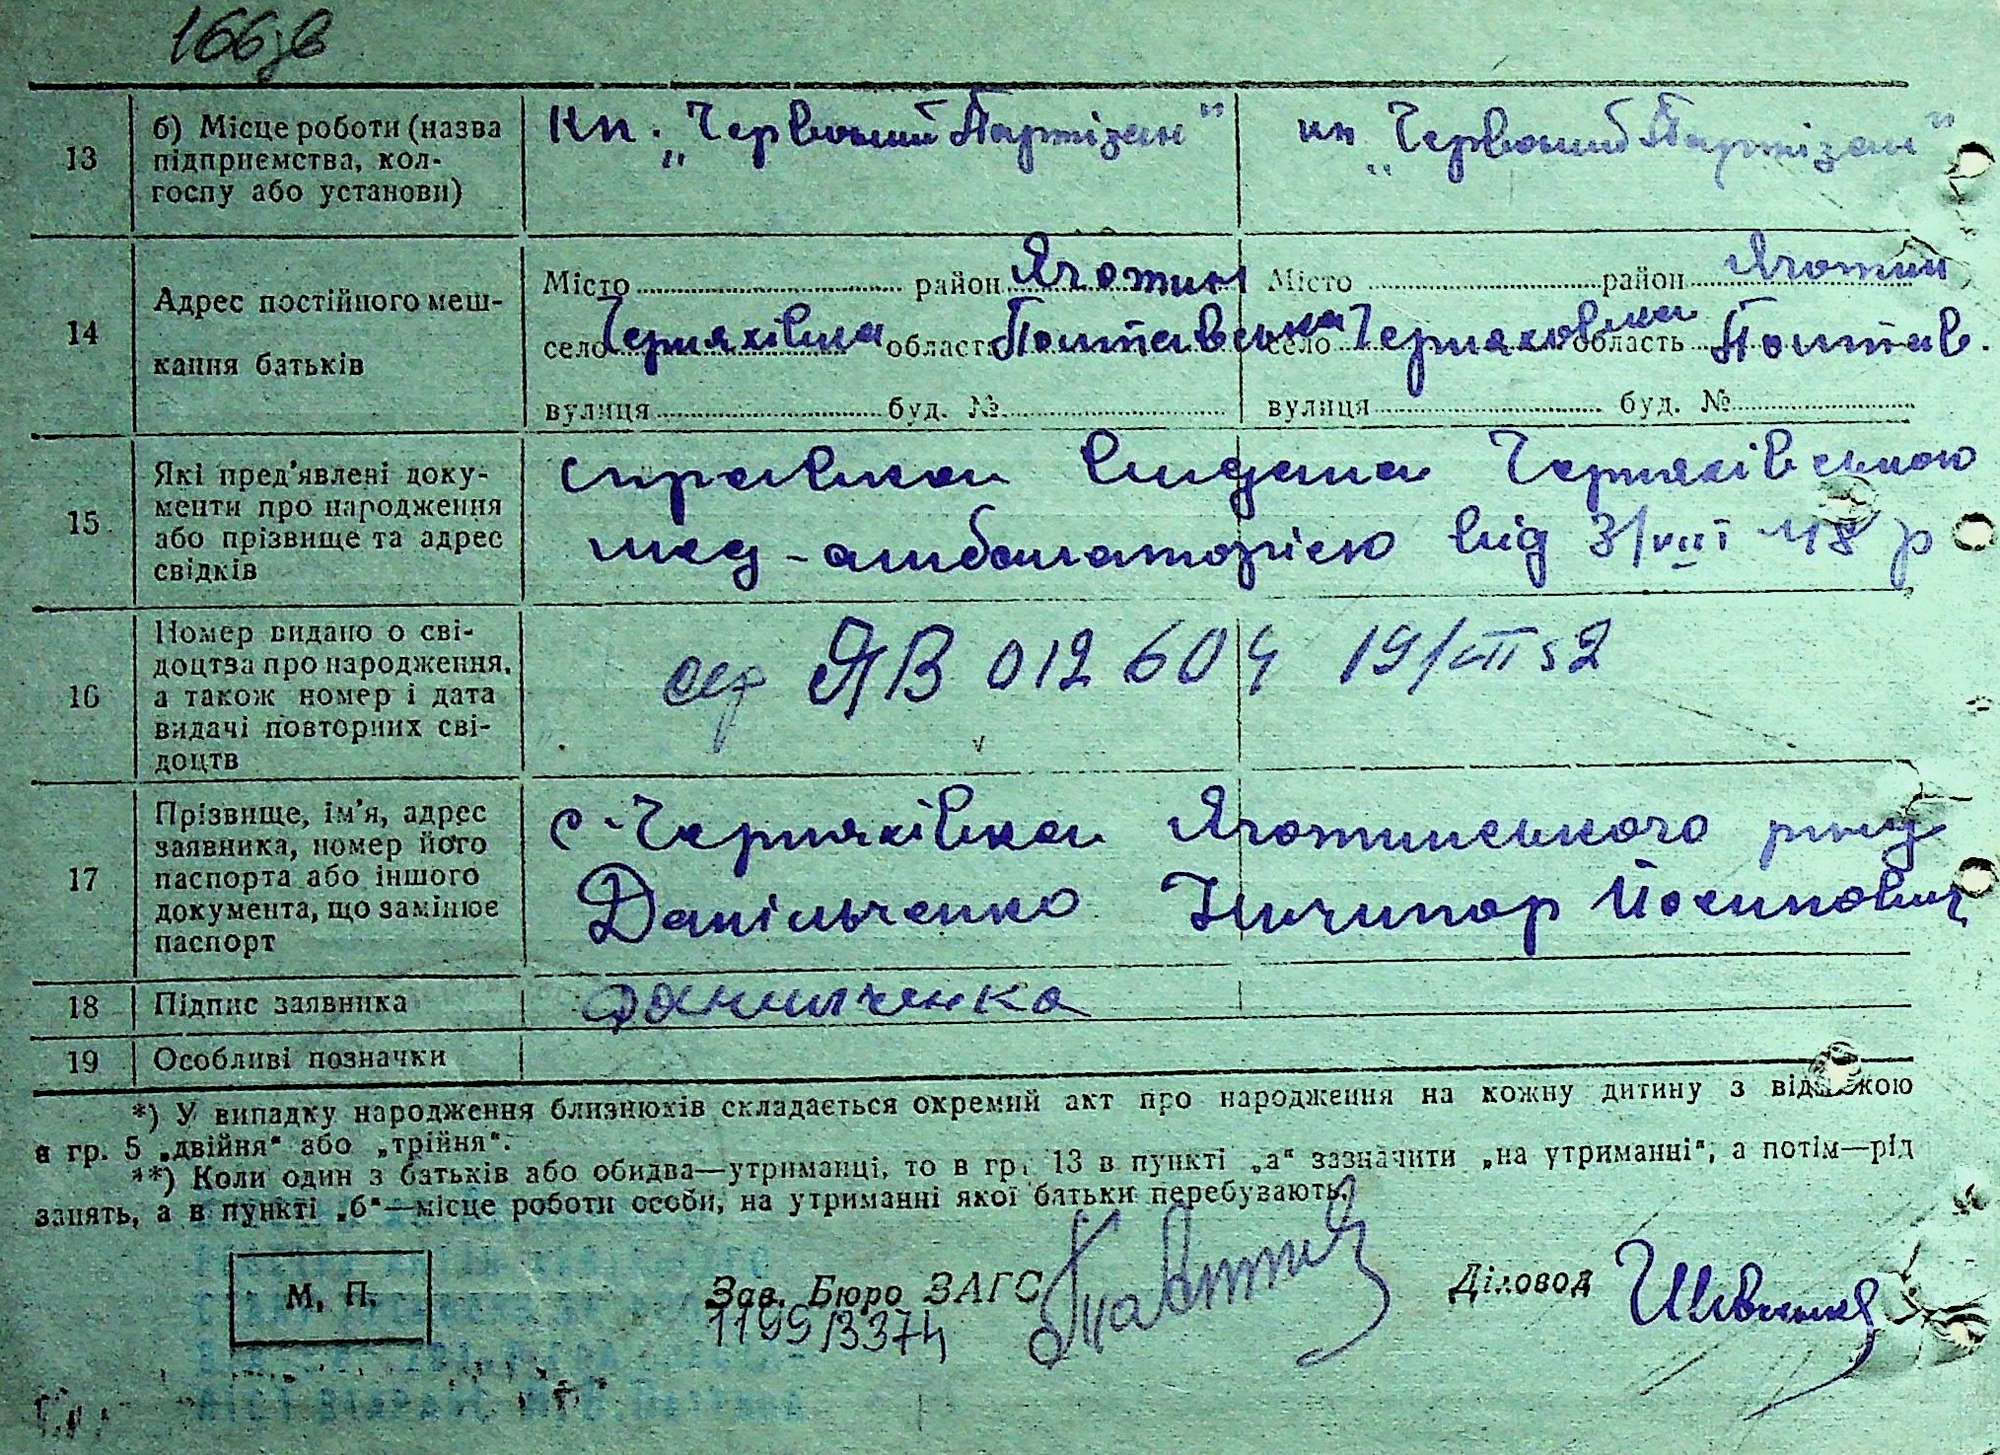 166зв
13
б) Місце роботи (назва
підприємства, кол-
госпу або установи)
кп. „Червоний Партізан"
кп „Червоний Партізан"
14
Адрес постійного меш-
кання батьків
Місто район Яготин
село Черняхівка область Полтавська
вулиця буд. №
Місто район Яготин
село Черняховка область Полтав.
вулиця буд. №
15
Які пред'явлені доку-
менти про народження
або прізвище та адрес
свідків
справка видана Черняхівською
мед-амболаторією від 3/VIII 48 р
16
Номер видано о сві-
доцтва про народження,
а також номер і дата
видачі повторних сві-
доцтв
сер ЯВ 012604 19/VII 52
17
Прізвище, ім'я, адрес
заявника, номер його
паспорта або іншого
документа, що замінює
паспорт
с-Черняхівка Яготинського
Данільченко Ничипор Йосипович
18
Підпис заявника
Данильченка
19
Особливі позначки
*) У випадку народження близнюків складається окремий акт про народження на кожну дитину з відміткою
в гр. 5 „двійня" або „трійня".
**) Коли один з батьків або обидва—утриманці, то в гр. 13 в пункті „а" зазначити „на утриманні", а потім—рід
занять, а в пункті „б"—місце роботи особи, на утриманні якої батьки перебувають.
М. П.
Зав. Бюро ЗАГС
1199/3374
Діловод